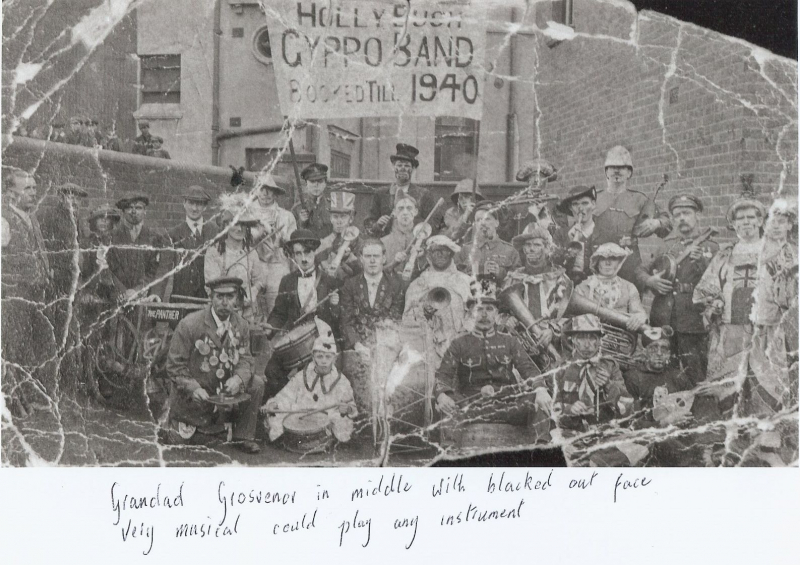 HOLLY BUSH
GYPPO BAND
BOOKED TILL 1940
PANTHER
Grandad Grosvenor in middle with blacked out face
very musical could play any instrument